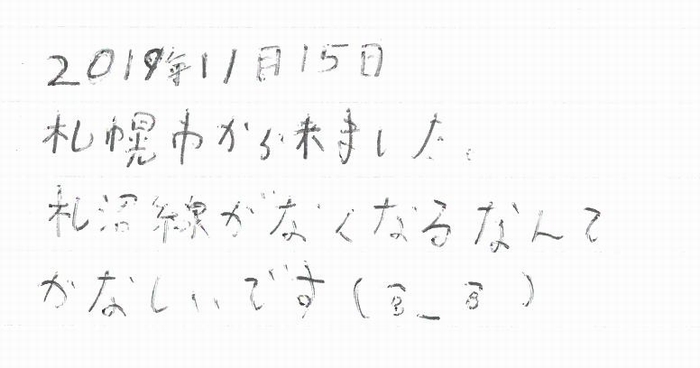 2019年11月15日
札幌市から来ました。
札沼線がなくなるなんて
かなしいです(ョ_ョ)